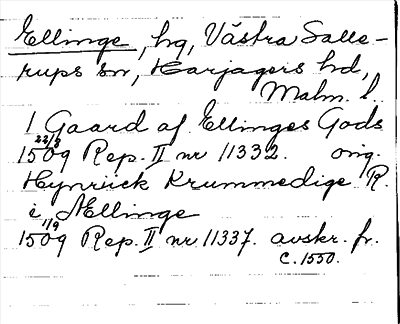 Ellinge, hg, Västra Salle-
rups sn, Harjagers hd,
Malm. l.
1 Gaard af Ellinges Gods
22/3
1509 Rep. II nr 11332. orig.
Hynriick Krummedige R.
i Ællinge
1/9
1509 Rep. II nr 11337. avskr. fr.
c. 1550.